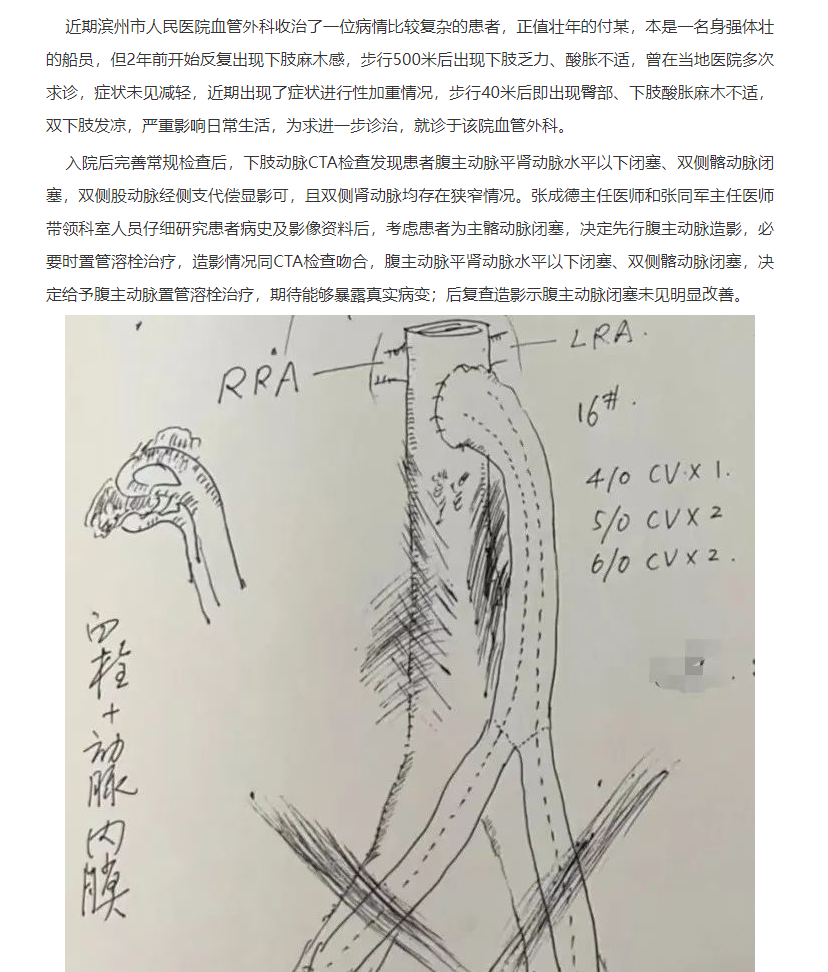 近期滨州市人民医院血管外科收治了一位病情比较复杂的患者，正值壮年的付某，本是一名身强体壮
的船员，但2年前开始反复出现下肢麻木感，步行500米后出现下肢乏力、酸胀不适，曾在当地医院多次
求诊，症状未见减轻，近期出现了症状进行性加重情况，步行40米后即出现臀部、下肢酸胀麻木不适，
双下肢发凉，严重影响日常生活，为求进一步诊治，就诊于该院血管外科。
入院后完善常规检查后，下肢动脉CTA检查发现患者腹主动脉平肾动脉水平以下闭塞、双侧髂动脉闭
塞，双侧股动脉经侧支代偿显影可，且双侧肾动脉均存在狭窄情况。张成德主任医师和张同军主任医师
带领科室人员仔细研究患者病史及影像资料后，考虑患者为主髂动脉闭塞，决定先行腹主动脉造影，必
要时置管溶栓治疗，造影情况同CTA检查吻合，腹主动脉平肾动脉水平以下闭塞、双侧髂动脉闭塞，决
定给予腹主动脉置管溶栓治疗，期待能够暴露真实病变；后复查造影示腹主动脉闭塞未见明显改善。
LRA.
RRA
16#.
4/0 CV×1.
5/0 CV×2
6/0 CV×2.
血栓+动脉内膜